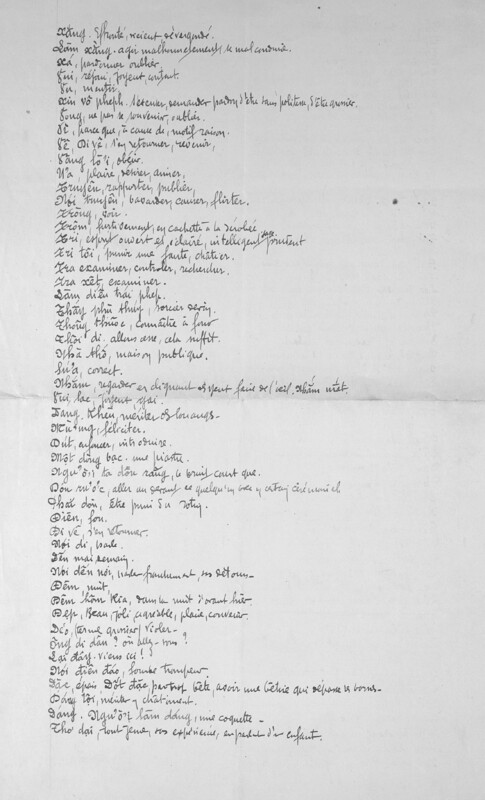 Xằng. Effronté, récent dévergondé.
Làm xằng. agir malheureusement, se mal conduire.
Xá, pardonner oublier.
Vui, réjoui, joyent, content.
Vu, mentir.
Xin vô phép. s'excuser, demander pardon d'être sans politesse, d'être grossier.
Vong, ne pas se souvenir, oublier.
Vì, parce que, à cause de, motif raison.
Về, Đi về, s'en retourner, revenir,
Vâng lời, obéir.
Ưa, plaire, désirer, aimer,
Truyền, rapporter, publier,
Nói truyện, bavarder, causer, flirter.
Trông, voir.
Trộm, furtivement, en cachette à la dérobée
Trí, esprit ouvert et éclairé, intelligent, prudent
Trị tội, punir une faute, châtier.
Tra examiner, contrôler, rechercher.
Tra xét, examiner.
Làm điều trái phép.
Thầy phù thủy, sorcier devin.
Thông thuộc, connaître à fond
Thôi đi. allons assez, cela suffit.
Nhà thổ, maison publique.
Sửa, correct.
Nhắm, regarder en clignant des yeux faire de l'œil. Nhắm mắt.
Vui, lạc, joyeux gai.
Đáng khen, mériter des louanges.
Mừng, féliciter.
Đút, enfoncer, introduire.
Một đồng bạc. une piastre.
Người ta đồn rằng, le bruit court que.
Đón rước, aller au devant de quelqu'un avec un certain cérémonial
Phát đòn, être puni du rotin.
Điên, fou.
Đi về, s'en retourner.
Nói đi, parle.
Đến mai demain.
Nói đến nơi, parler franchement, sans détours
Đêm, nuit,
Đêm hôm kia, dans la nuit d'avant hier.
Đẹp, Beau, joli agréable, plaire, convenir.
Đéo, terme grossier, violer
Ông đi đâu ? où allez-vous ?
Lại đây. viens ici !
Nói điên đảo, fourbe trompeur
Đặc, épais, Dốt đặc, par trop bête, avoir une bêtise qui dépasse les bornes
Đáng tội, mériter un châtiment.
Dáng. Người làm dáng, une coquette
Thơ dại, tout jeune, sans expérience, en parlant d'un enfant.